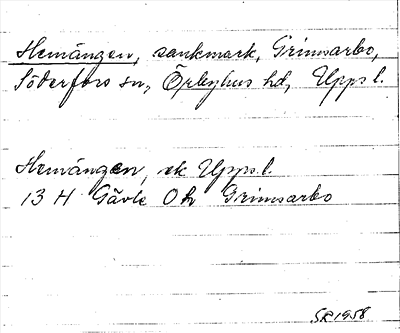 Hemängen, sankmark, Grimsarbo,
Söderfors sn, Örbyhus hd, Upps l.
Hemängen, ek Upps. l.
13 H Gävle O h Grimsarbo
SR 1958